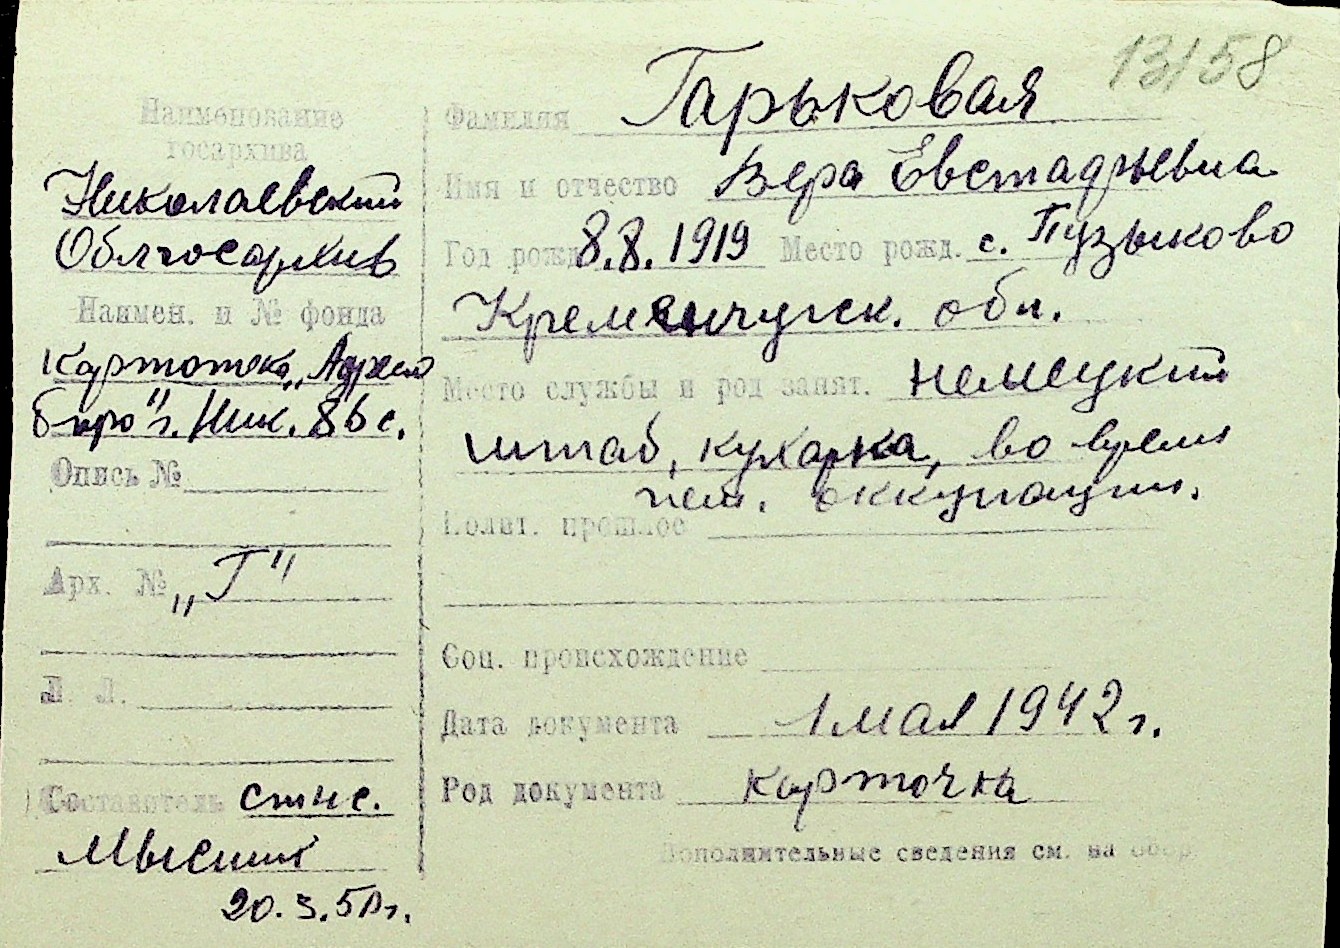 13158
Наименование
госархива
Николаевский
Облгосархив
Наимен. и № фонда
Картотека „Адресо
бюро" г. Ник. 86 с.
Опись №
Арх. № „Г"
Л. Л.
Составитель стнс.
Мысник
20.3.50 г.
Фамилия Гарьковая
Имя и отчество Вера Евстафьевна
Год рожд. 8.8.1919 Место рожд. с. Пузыково
Кременчугск. обл.
Место службы и род занят. немецкий
штаб, кухарка, во время
нем. оккупации.
Полит. прошлое
Соц. происхождение
Дата документа 1 мая 1942 г.
Род документа карточка
Дополнительные сведения см. на обор.